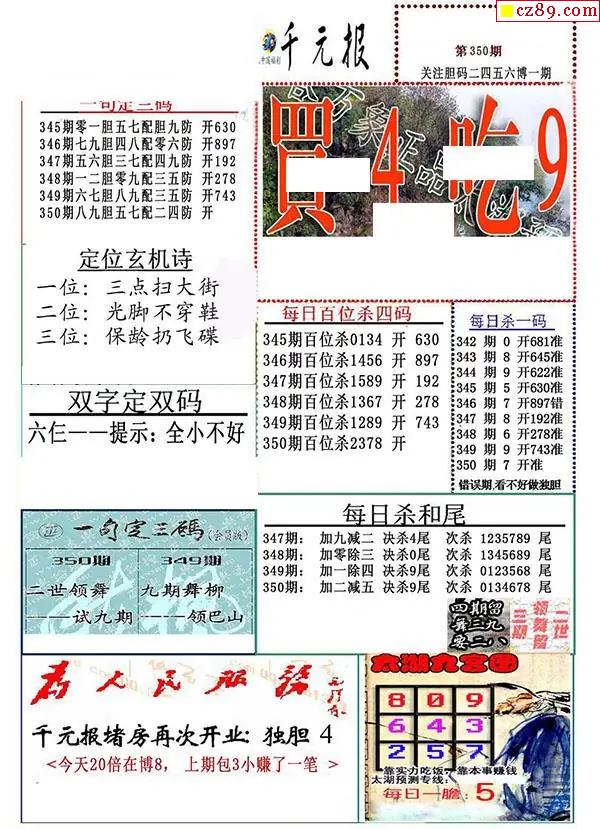 cz89.com
千元报
第350期
关注胆码二四五六博一期
一句定三码
345期零一胆五七配胆九防 开630
346期七九胆四八配零六防 开897
347期五六胆三七配四九防 开192
348期一二胆零九配三五防 开278
349期六七胆八九配三五防 开743
350期八九胆五七配二四防 开
買4吃9
定位玄机诗
一位：三点扫大街
二位：光脚不穿鞋
三位：保龄扔飞碟
每日百位杀四码
345期百位杀0134 开 630
346期百位杀1456 开 897
347期百位杀1589 开 192
348期百位杀1367 开 278
349期百位杀1289 开 743
350期百位杀2378 开
每日杀一码
342 期 0 开681准
343 期 8 开645准
344 期 9 开622准
345 期 5 开630准
346 期 7 开897错
347 期 8 开192准
348 期 6 开278准
349 期 9 开743准
350 期 7 开准
错误期,看不好做独胆
双字定双码
六仨——提示：全小不好
正 一句定三碼(会员版)
350期
二世领舞
——试九期
349期
九期舞柳
——领巴山
每日杀和尾
347期： 加九减二 决杀4尾 次杀 1235789 尾
348期： 加零除三 决杀0尾 次杀 1345689 尾
349期： 加一除四 决杀9尾 次杀 0123568 尾
350期： 加二减五 决杀9尾 次杀 0134678 尾
四期留
舞三九
要二八
二世
领舞留
三期
为人民服务
千元报堵房再次开业：独胆 4
<今天20倍在博8， 上期包3小赚了一笔 >
太湖九宫图
8 0 9
6 4 3
2 5 7
靠实力吃饭 靠本事赚钱
太湖预测专线:
每日一胆: 5